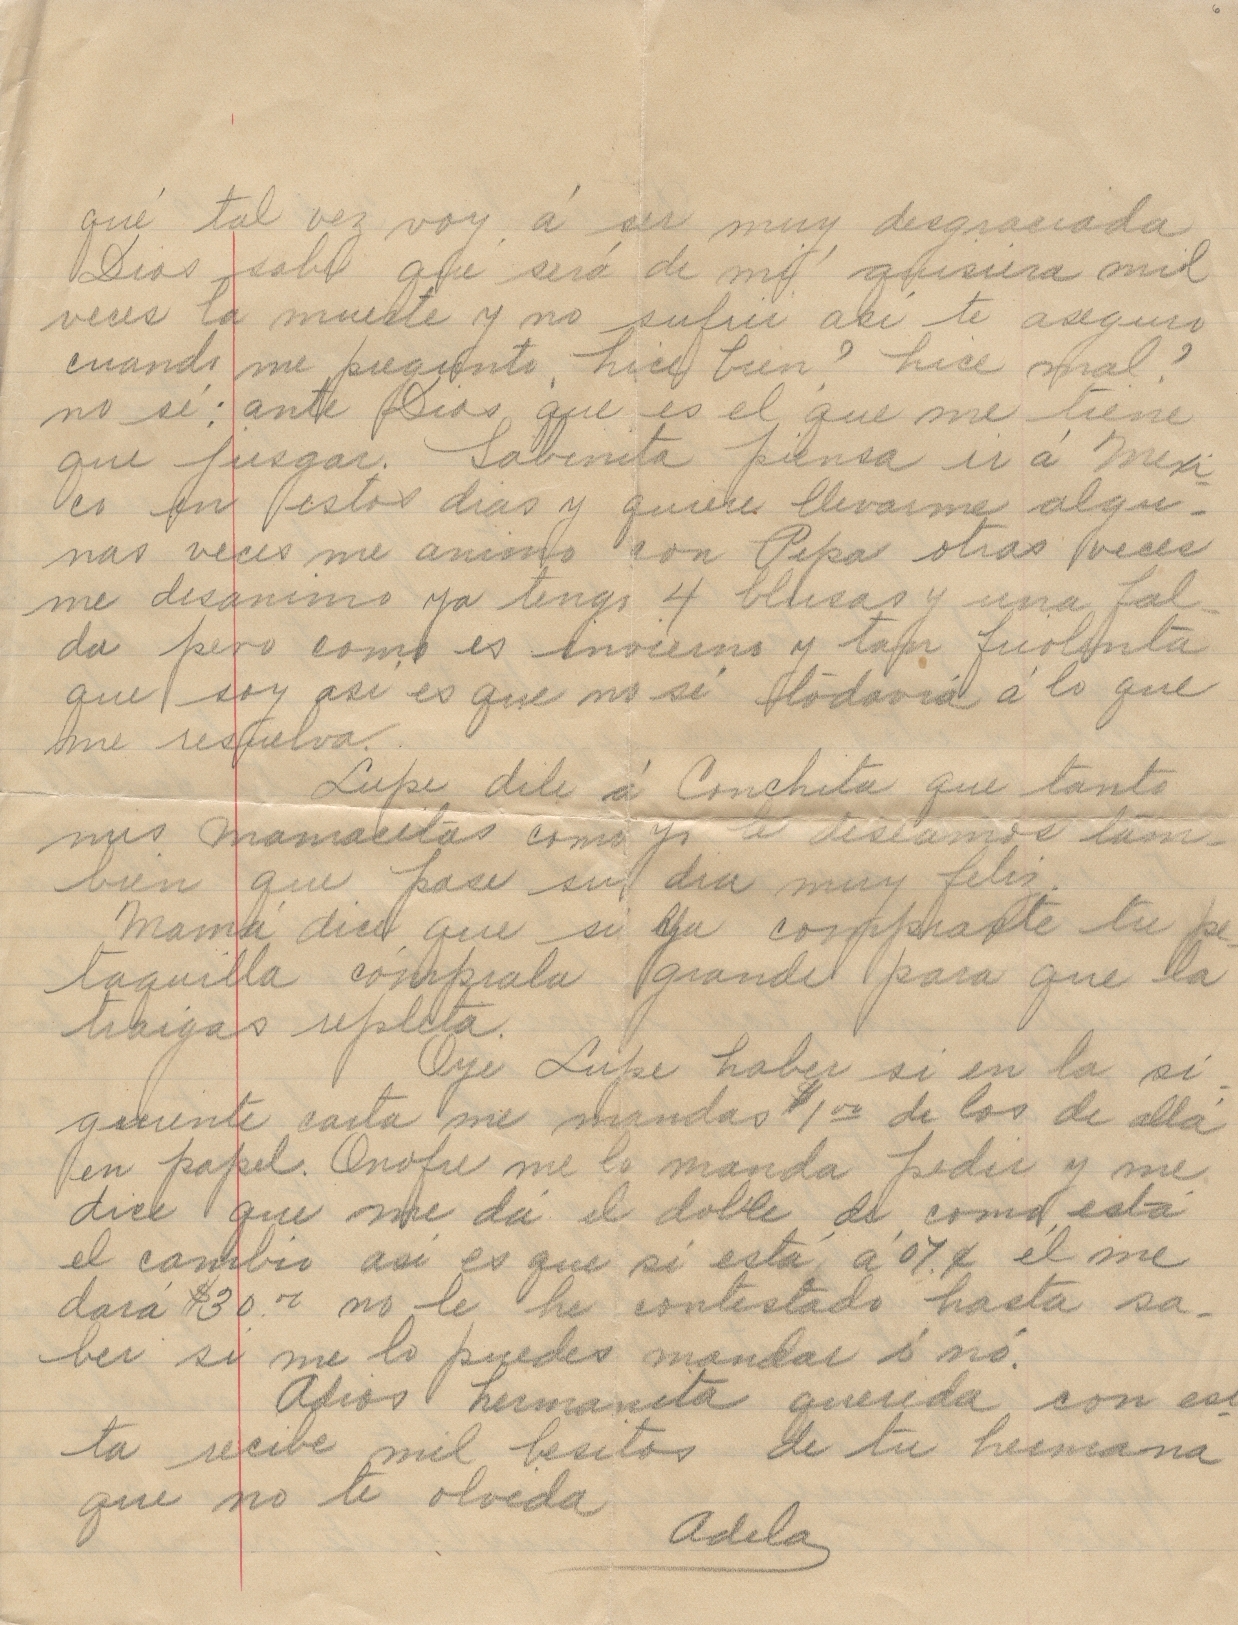 6
qué tal vez voy á ser muy desgraciada
Dios sabe qué será de mí quisiera mil
veces la muerte y no sufrir así te aseguro
cuando me pregunto, hice bien? hice mal?
no sé; ante Dios, que es el que me tiene
que jusgar. Sabinita piensa ir á Mexi-
co en estos dias y quiere llevarme algu-
nas veces me animo con Pepa otras veces
me desanimo ya tengo 4 blusas y una fal-
da pero como es invierno y tan friolenta
que soy así es que no sé todavía á lo que
me resuelva.
Lupe dile á Conchita que tanto
mis mamacitas como yo le deseamos tam-
bien que pase su dia muy feliz.
Mamá dice que si ya compraste tu pe-
taquilla cómprala grande para que la
traigas repleta.
Oye Lupe haber si en la si-
guiente carta me mandas $1.00 de los de allá
en papel. Onofre me lo manda pedir y me
dice que me dá el doble de como está
el cambio así es que si está á él me
dará $30.00 no le he contestado hasta sa-
ber si me lo puedes mandar ó nó.
Adios hermanita querida con es-
ta recibe mil besitos de tu hermana
que no te olvida
Adela